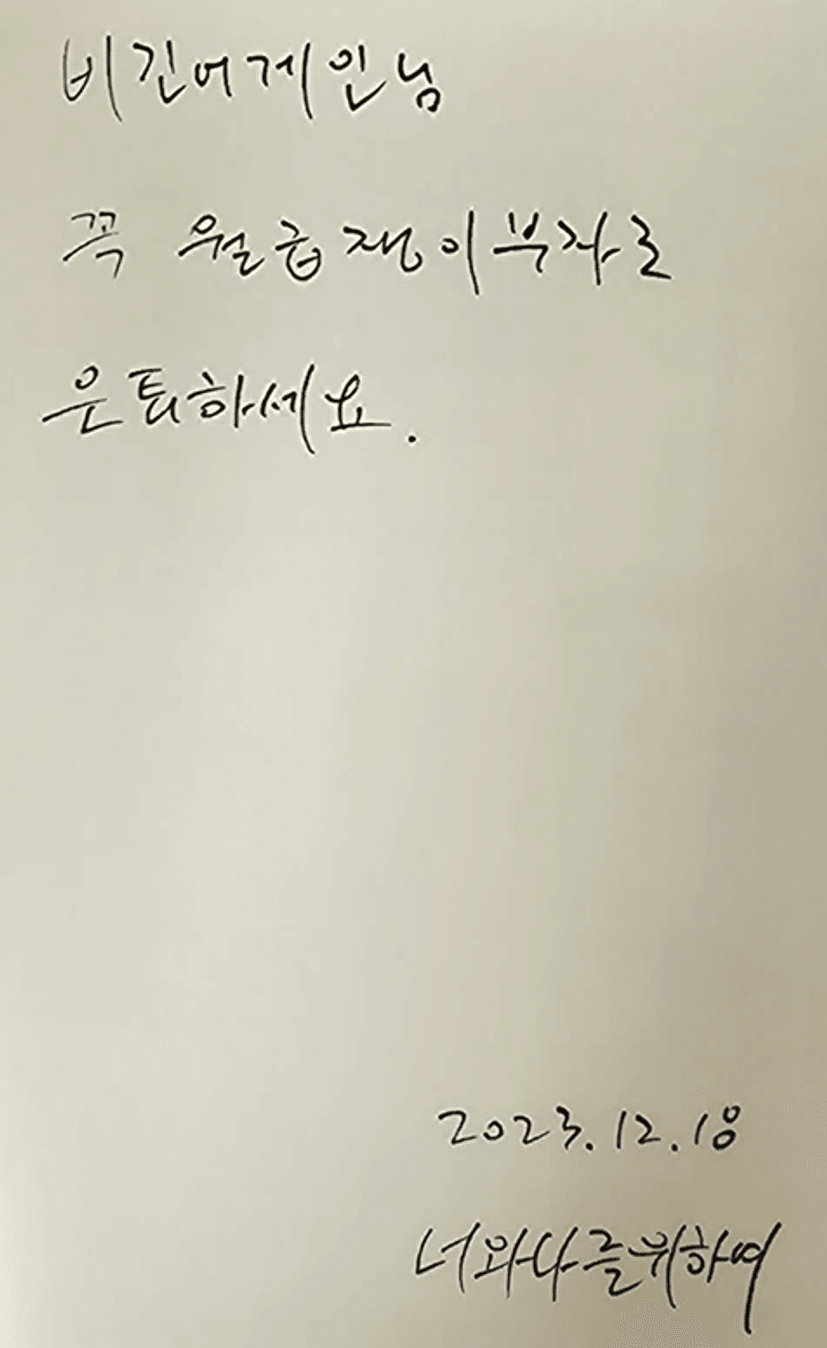 비긴어게인님
꼭 월급쟁이부자로
은퇴하세요.
2023.12.18
너와나를위하여